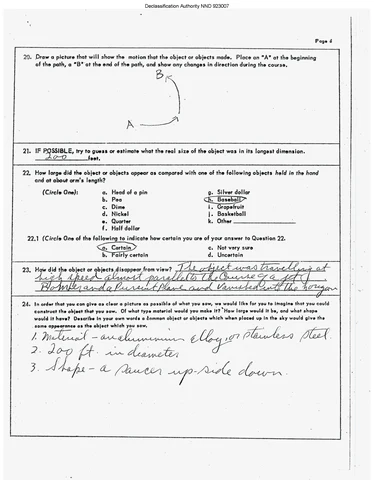 Declassification Authority NND 923007
Page 6
20. Draw a picture that will show the motion that the object or objects made. Place an "A" at the beginning
of the path, a "B" at the end of the path, and show any changes in direction during the course.
B
A
21. IF POSSIBLE, try to guess or estimate what the real size of the object was in its longest dimension.
200 feet.
22. How large did the object or objects appear as compared with one of the following objects held in the hand
and at about arm's length?
(Circle One):
a. Head of a pin
b. Pea
c. Dime
d. Nickel
e. Quarter
f. Half dollar
g. Silver dollar
h. Baseball
i. Grapefruit
j. Basketball
k. Other
22.1 (Circle One of the following to indicate how certain you are of your answer to Question 22.
a. Certain
b. Fairly certain
c. Not very sure
d. Uncertain
23. How did the object or objects disappear from view? The object was travelling at
high speed almost parallel to the course of a jet
Bomber and a Pursuit Plane and vanished into the horizon
24. In order that you can give as clear a picture as possible of what you saw, we would like for you to imagine that you could
construct the object that you saw. Of what type material would you make it? How large would it be, and what shape
would it have? Describe in your own words a common object or objects which when placed up in the sky would give the
same appearance as the object which you saw.
1. Material - an aluminium alloy, or stainless steel.
2. 200 ft. in diameter
3. Shape - a saucer up-side down.